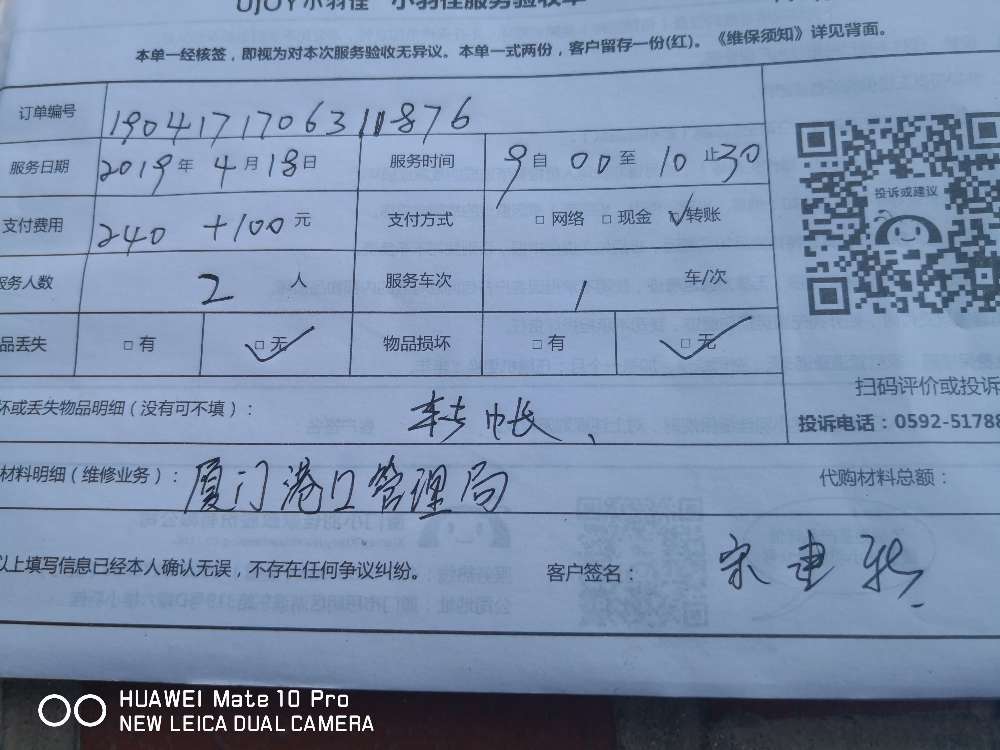 UJOY小羽佳 小羽佳服务验收单
本单一经核签，即视为对本次服务验收无异议。本单一式两份，客户留存一份(红)。《维保须知》详见背面。
订单编号 19041717063110876
服务日期 2019年4月18日 服务时间 9自00至10止30
支付费用 240 +100元 支付方式 □网络 □现金 ☑转账
服务人数 2人 服务车次 1 车/次
品丢失 □有 ☑无 物品损坏 □有 ☑无
投诉或建议
扫码评价或投诉
坏或丢失物品明细（没有可不填）： 转帐、
投诉电话：0592-51788
材料明细（维修业务）： 厦门港口管理局 代购材料总额：
以上填写信息已经本人确认无误，不存在任何争议纠纷。 客户签名： 宋建
HUAWEI Mate 10 Pro
NEW LEICA DUAL CAMERA